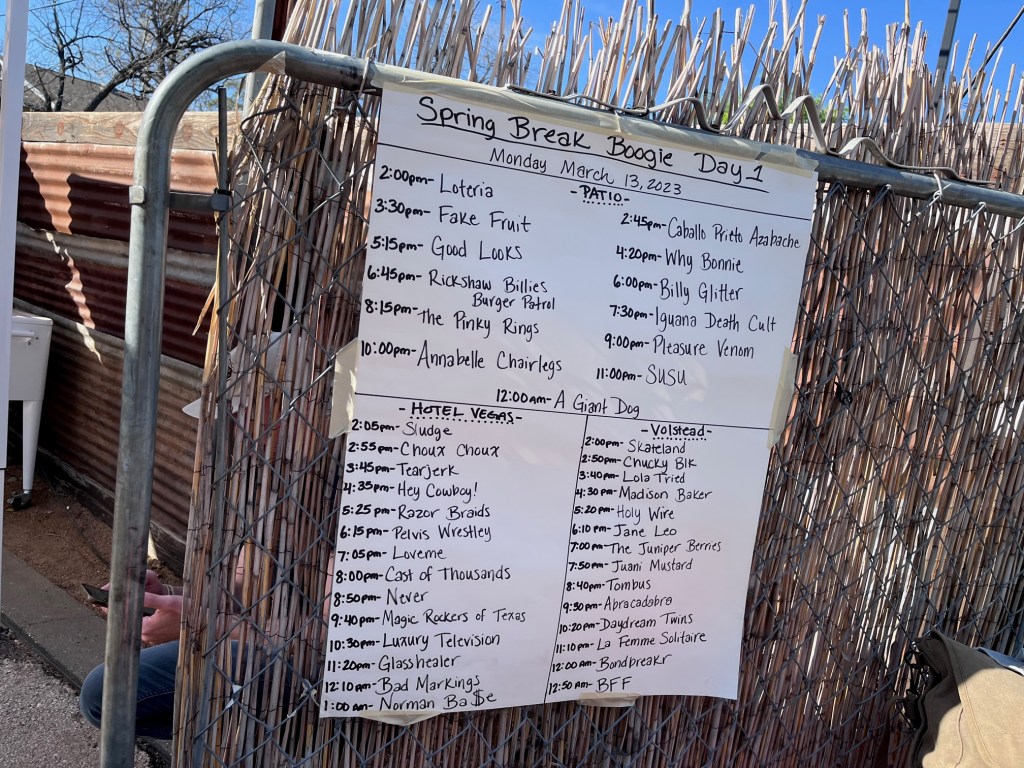 Spring Break Boogie Day 1
Monday March 13, 2023
- PATIO -
2:00pm- Loteria
3:30pm- Fake Fruit
5:15pm- Good Looks
6:45pm- Rickshaw Billies
Burger Patrol
8:15pm- The Pinky Rings
10:00pm- Annabelle Chairlegs
2:45pm- Caballo Prieto Azabache
4:20pm- Why Bonnie
6:00pm- Billy Glitter
7:30pm- Iguana Death Cult
9:00pm- Pleasure Venom
11:00pm- SUSU
12:00am- A Giant Dog
- HOTEL VEGAS -
2:05pm- Sludge
2:55pm- Choux Choux
3:45pm- Tearjerk
4:35pm- Hey Cowboy!
5:25pm- Razor Braids
6:15pm- Pelvis Wrestley
7:05pm- Loveme
8:00pm- Cast of Thousands
8:50pm- Never
9:40pm- Magic Rockers of Texas
10:30pm- Luxury Television
11:20pm- Glasshealer
12:10am- Bad Markings
1:00am- Norman Ba$e
- Volstead -
2:00pm- Skateland
2:50pm- Chucky Blk
3:40pm- Lola Tried
4:30pm- Madison Baker
5:20pm- Holy Wire
6:10pm- Jane Leo
7:00pm- The Juniper Berries
7:50pm- Juani Mustard
8:40pm- Tombus
9:30pm- Abracadabra
10:20pm- Daydream Twins
11:10pm- La Femme Solitaire
12:00am- Bondbreakr
12:50am- BFF